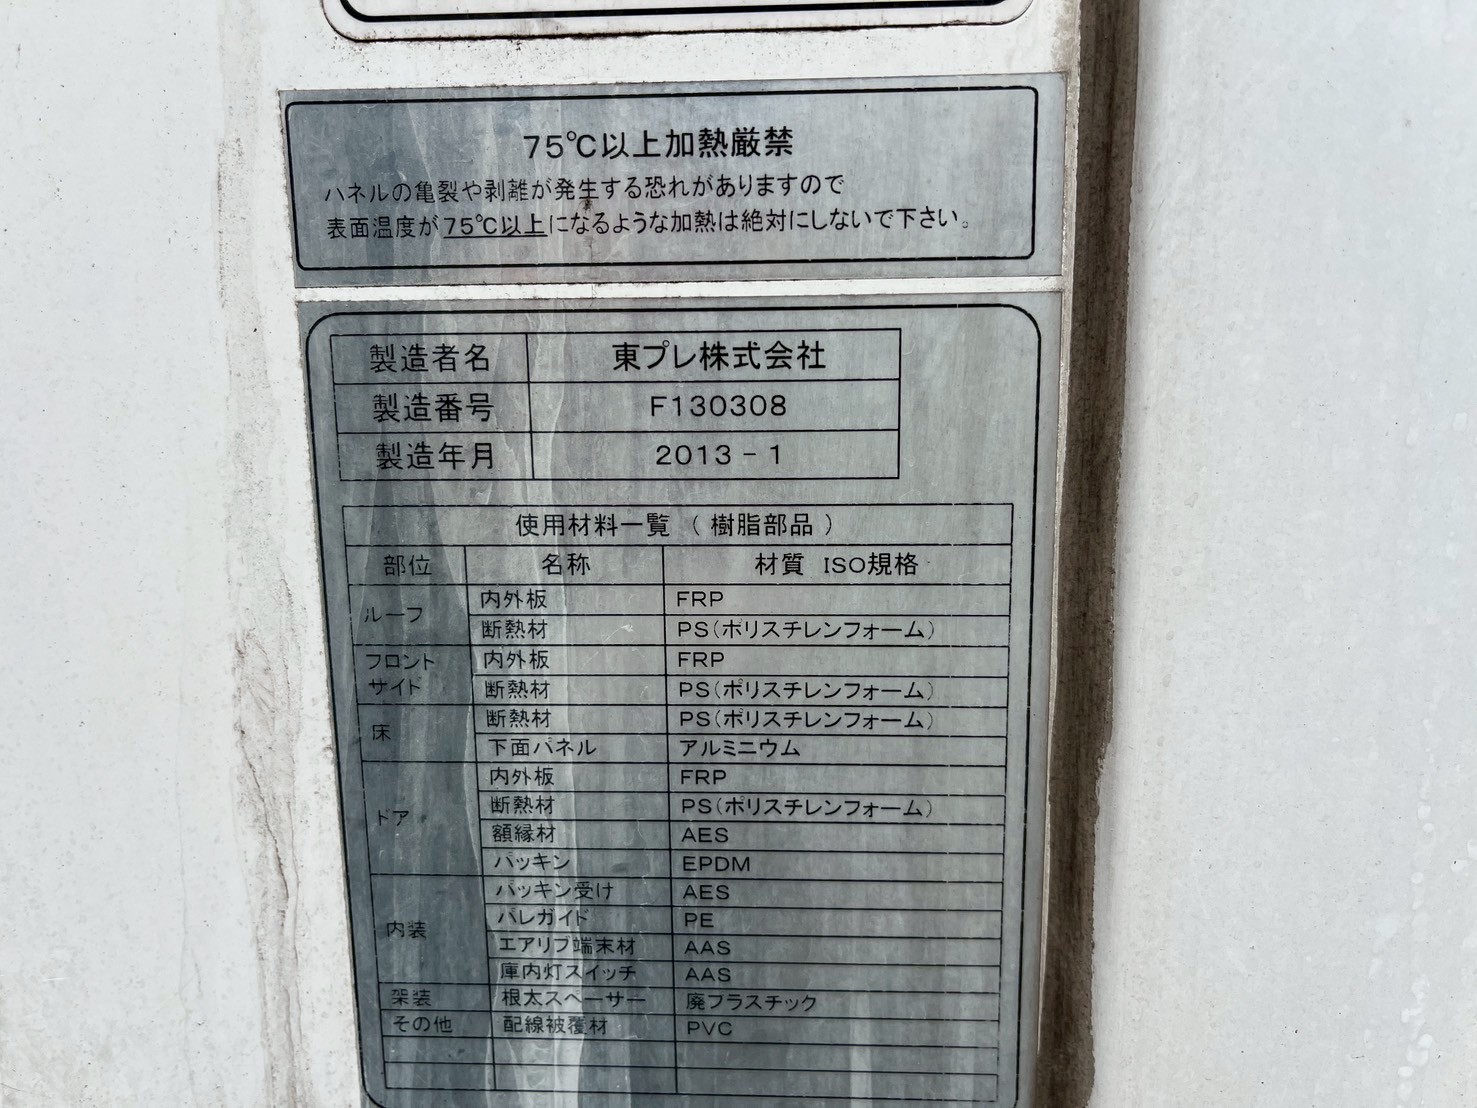 75℃以上加熱厳禁
パネルの亀裂や剥離が発生する恐れがありますので
表面温度が75℃以上になるような加熱は絶対にしないで下さい。
製造者名 東プレ株式会社
製造番号 F130308
製造年月 2013-1
使用材料一覧 (樹脂部品)
部位 名称 材質 ISO規格
ルーフ 内外板 FRP
断熱材 PS(ポリスチレンフォーム)
フロント 内外板 FRP
サイド 断熱材 PS(ポリスチレンフォーム)
床 断熱材 PS(ポリスチレンフォーム)
下面パネル アルミニウム
ドア 内外板 FRP
断熱材 PS(ポリスチレンフォーム)
額縁材 AES
パッキン EPDM
内装 パッキン受け AES
パレガイド PE
エアリブ端末材 AAS
庫内灯スイッチ AAS
架装 根太スペーサー 廃プラスチック
その他 配線被覆材 PVC